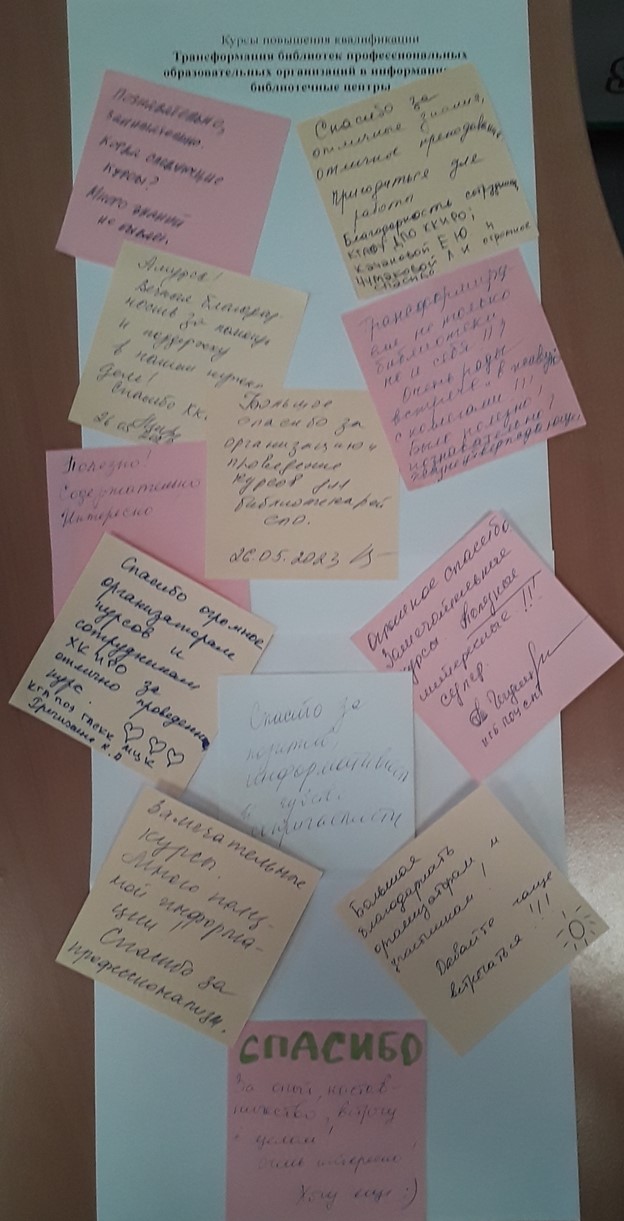 Курсы повышения квалификации
Трансформация библиотек профессиональных
образовательных организаций в информацио
библиотечные центры
Познавательно,
занимательно.
Когда следующие
курсы?
Много знаний
не бывает.
Спасибо за
отличные знания,
отличное преподавание
Пригодиться для
работы
Благодарность сотрудник
КГАОУ ДПО ККИРО;
Качановой Е Ю и
Чумаковой Л И огромное
спасибо
Амурск!
Вечная благодар-
ность за помощь
и поддержку
в нашем нужно
деле!
Спасибо КК.
26.05
Трансформиру
ем не только
библиотеки
но и себя !!!
Очень рады
встрече в живую
с коллегами !!!
Было полезно,
познавательно
Большое
спасибо за
организацию и
проведение
курсов для
библиотекарей
СПО.
26.05.2023
Полезно!
Содержательно
Интересно
Спасибо огромное
организаторам
курсов и
сотрудникам
ХК ИРО за
отлично проведенны
курс.
Огромное спасибо
Замечательные
курсы полезные
интересные !!!
супер
Спасибо за
позитив,
информативность
Замечательные
курсы.
Много полез-
ной информа-
ции!
Спасибо за
профессионализм.
Большая
благодарность
организаторам и
участникам!
Давайте чаще
встречаться !!!
СПАСИБО
За опыт, настав-
ничество, встречу
в целом!
Очень интересно,
Хочу еще :)